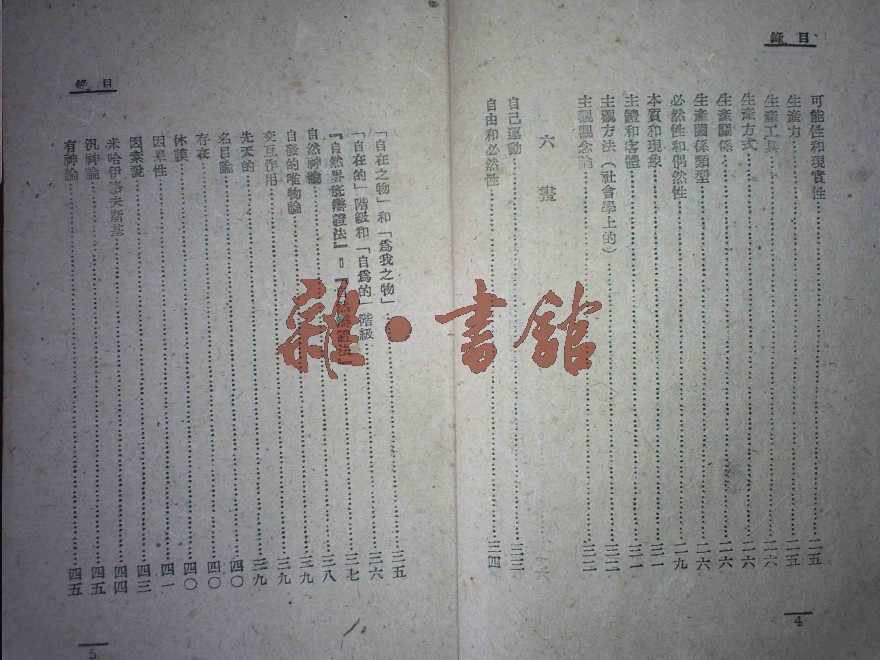 目錄
可能性和現實性……二五
生產力……二五
生產工具……二六
生產方式……二六
生產關係……二六
生產關係類型……二六
必然性和偶然性……二九
本質和現象……三一
主體和客體……三一
主觀方法(社會學上的)……三二
主觀觀念論……三二
六畫
自己運動……三三
自由和必然性……三四
4
目錄
「自在之物」和「為我之物」……三五
「自在的」階級和「自為的」階級……三六
『自然界底辯證法』=『自然辯證法』……三七
自然神論……三八
自發的唯物論……三九
交互作用……三九
先天的……三九
名目論……四〇
存在……四〇
休謨……四〇
因果性……四一
因素說……四三
米哈伊洛夫斯基……四四
汎神論……四五
有神論……四五
5
雜·書舘